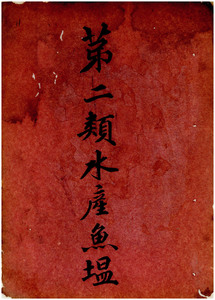 第二類水產魚塭